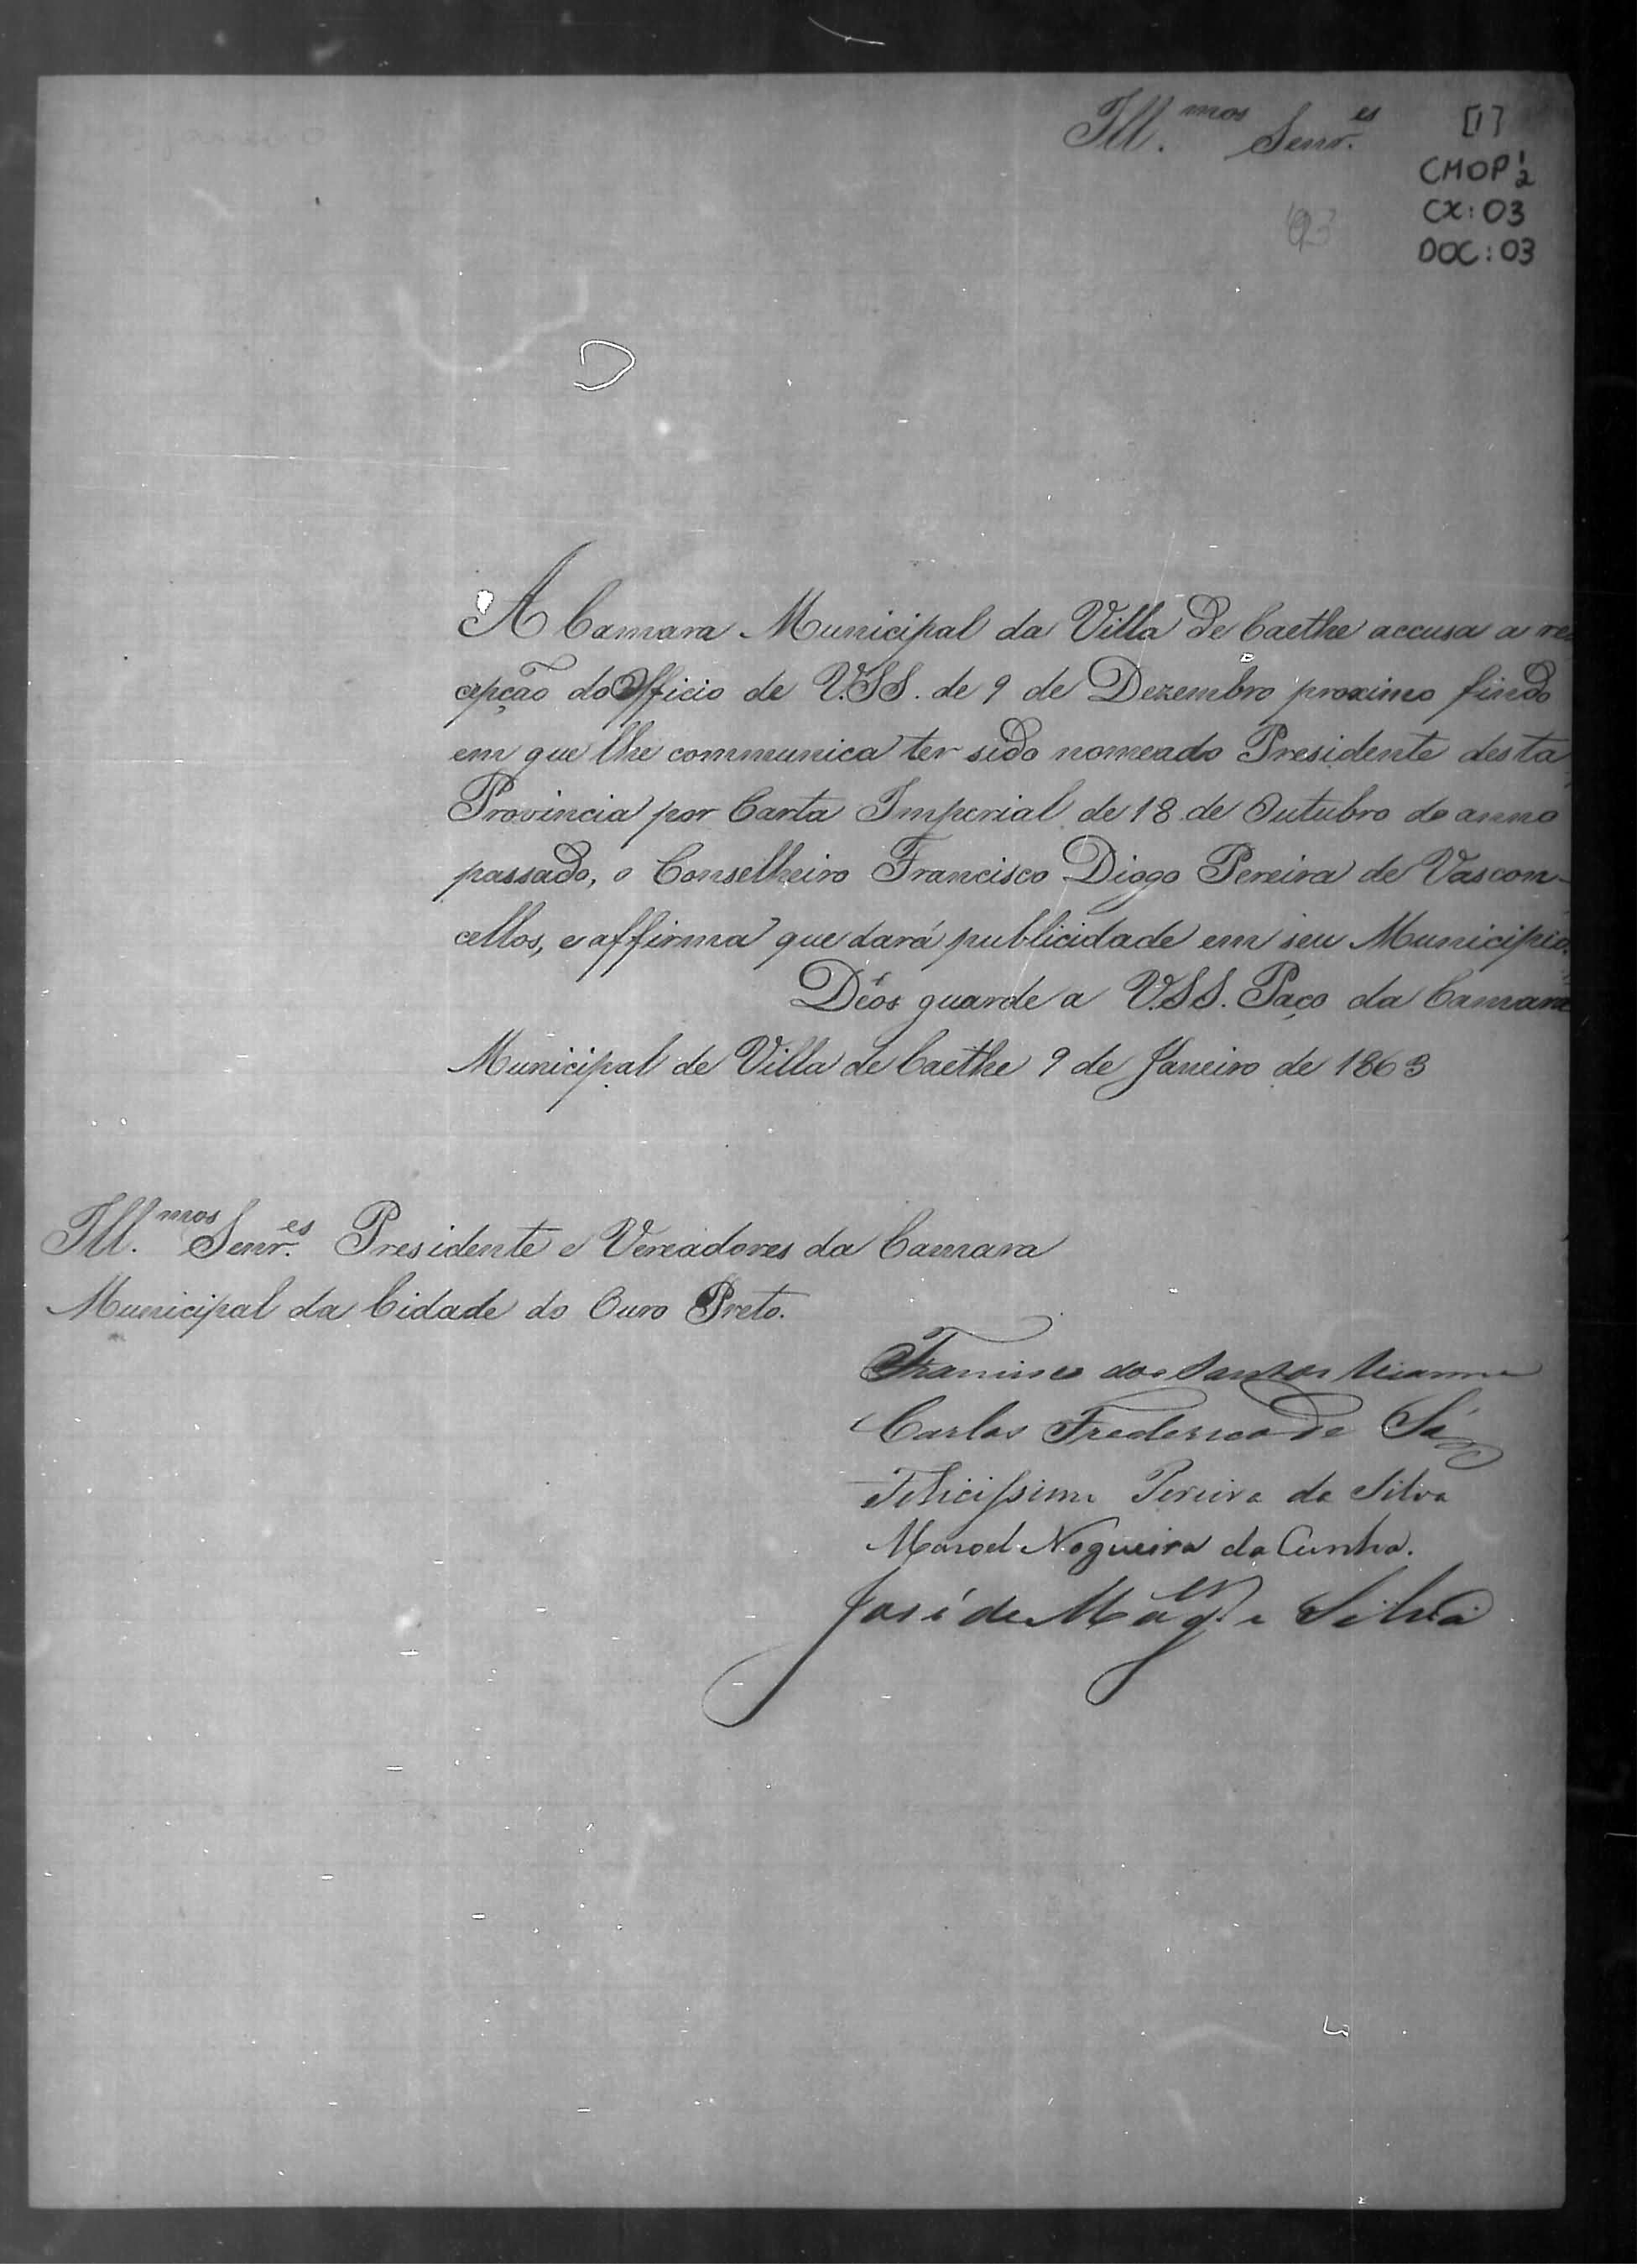 Ill.mos Senr.es
[1]
CMOP 1/2
CX: 03
DOC: 03
A Camara Municipal da Villa de Caethe accusa a re
cepção do Officio de V.SS. de 9 de Dezembro proximo findo
em que lhe communica ter sido nomeado Presidente desta
Provincia por Carta Imperial de 18 de Outubro do anno
passado, o Conselheiro Francisco Diogo Pereira de Vascon-
cellos, e affirma que dará publicidade em seu Municipio.
Déos guarde a V.SS. Paço da Camara
Municipal de Villa de Caethe 9 de Janeiro de 1863
Ill.mos Senr.es Presidente e Vereadores da Camara
Municipal da Cidade do Ouro Preto.
Francisco dos Santos Vianna
Carlos Frederico de Sá
Felicissimo Pereira da Silva
Manoel Nogueira da Cunha.
José de Mag.es Silva